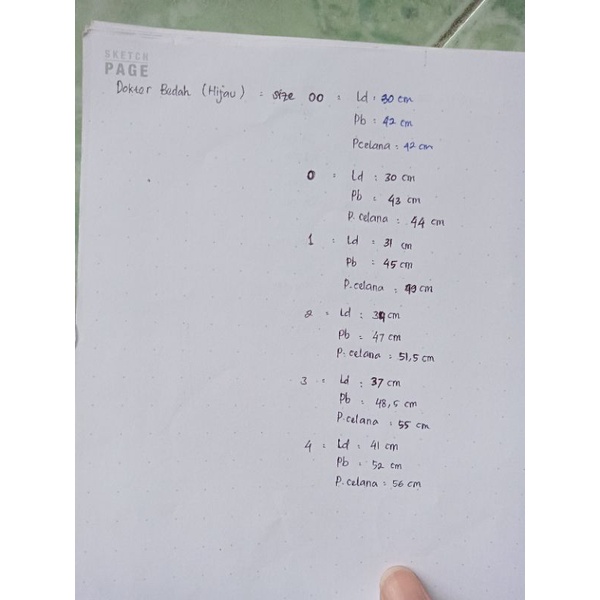 SKETCH
PAGE
Doktor Budah (Hijau) : size 00 : Ld : 30 cm
Pb : 42 cm
Pcelana : 42 cm
0 : Ld : 30 cm
Pb : 43 cm
P. celana : 44 cm
1 : Ld : 31 cm
Pb : 45 cm
P. celana : 49 cm
2 : Ld : 34 cm
Pb : 47 cm
P. celana : 51,5 cm
3 : Ld : 37 cm
Pb : 48,5 cm
P. celana : 55 cm
4 : Ld : 41 cm
Pb : 52 cm
P. celana : 56 cm